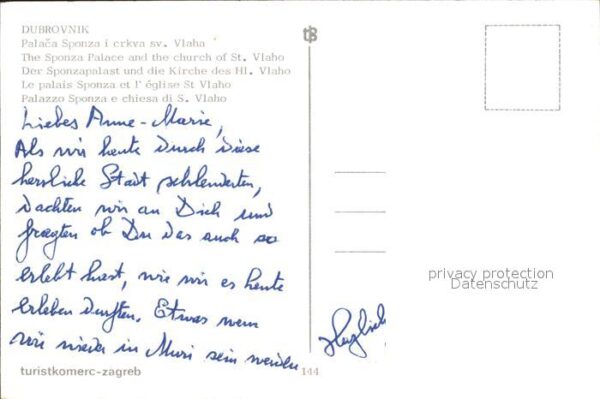 DUBROVNIK
Palača Sponza i crkva sv. Vlaha
The Sponza Palace and the church of St. Vlaho
Der Sponzapalast und die Kirche des Hl. Vlaho
Le palais Sponza et l' église St Vlaho
Palazzo Sponza e chiesa di S. Vlaho
Liebes Anne-Marie,
Als wir heute durch diese
herrliche Stadt schlenderten,
dachten wir an Dich und
fragten ob Du das auch so
erlebt hast, wie wir es heute
erleben durften. Etwas wenn
wir wieder in Muri sein werden
Herzlich
turistkomerc-zagreb
144
privacy protection
Datenschutz